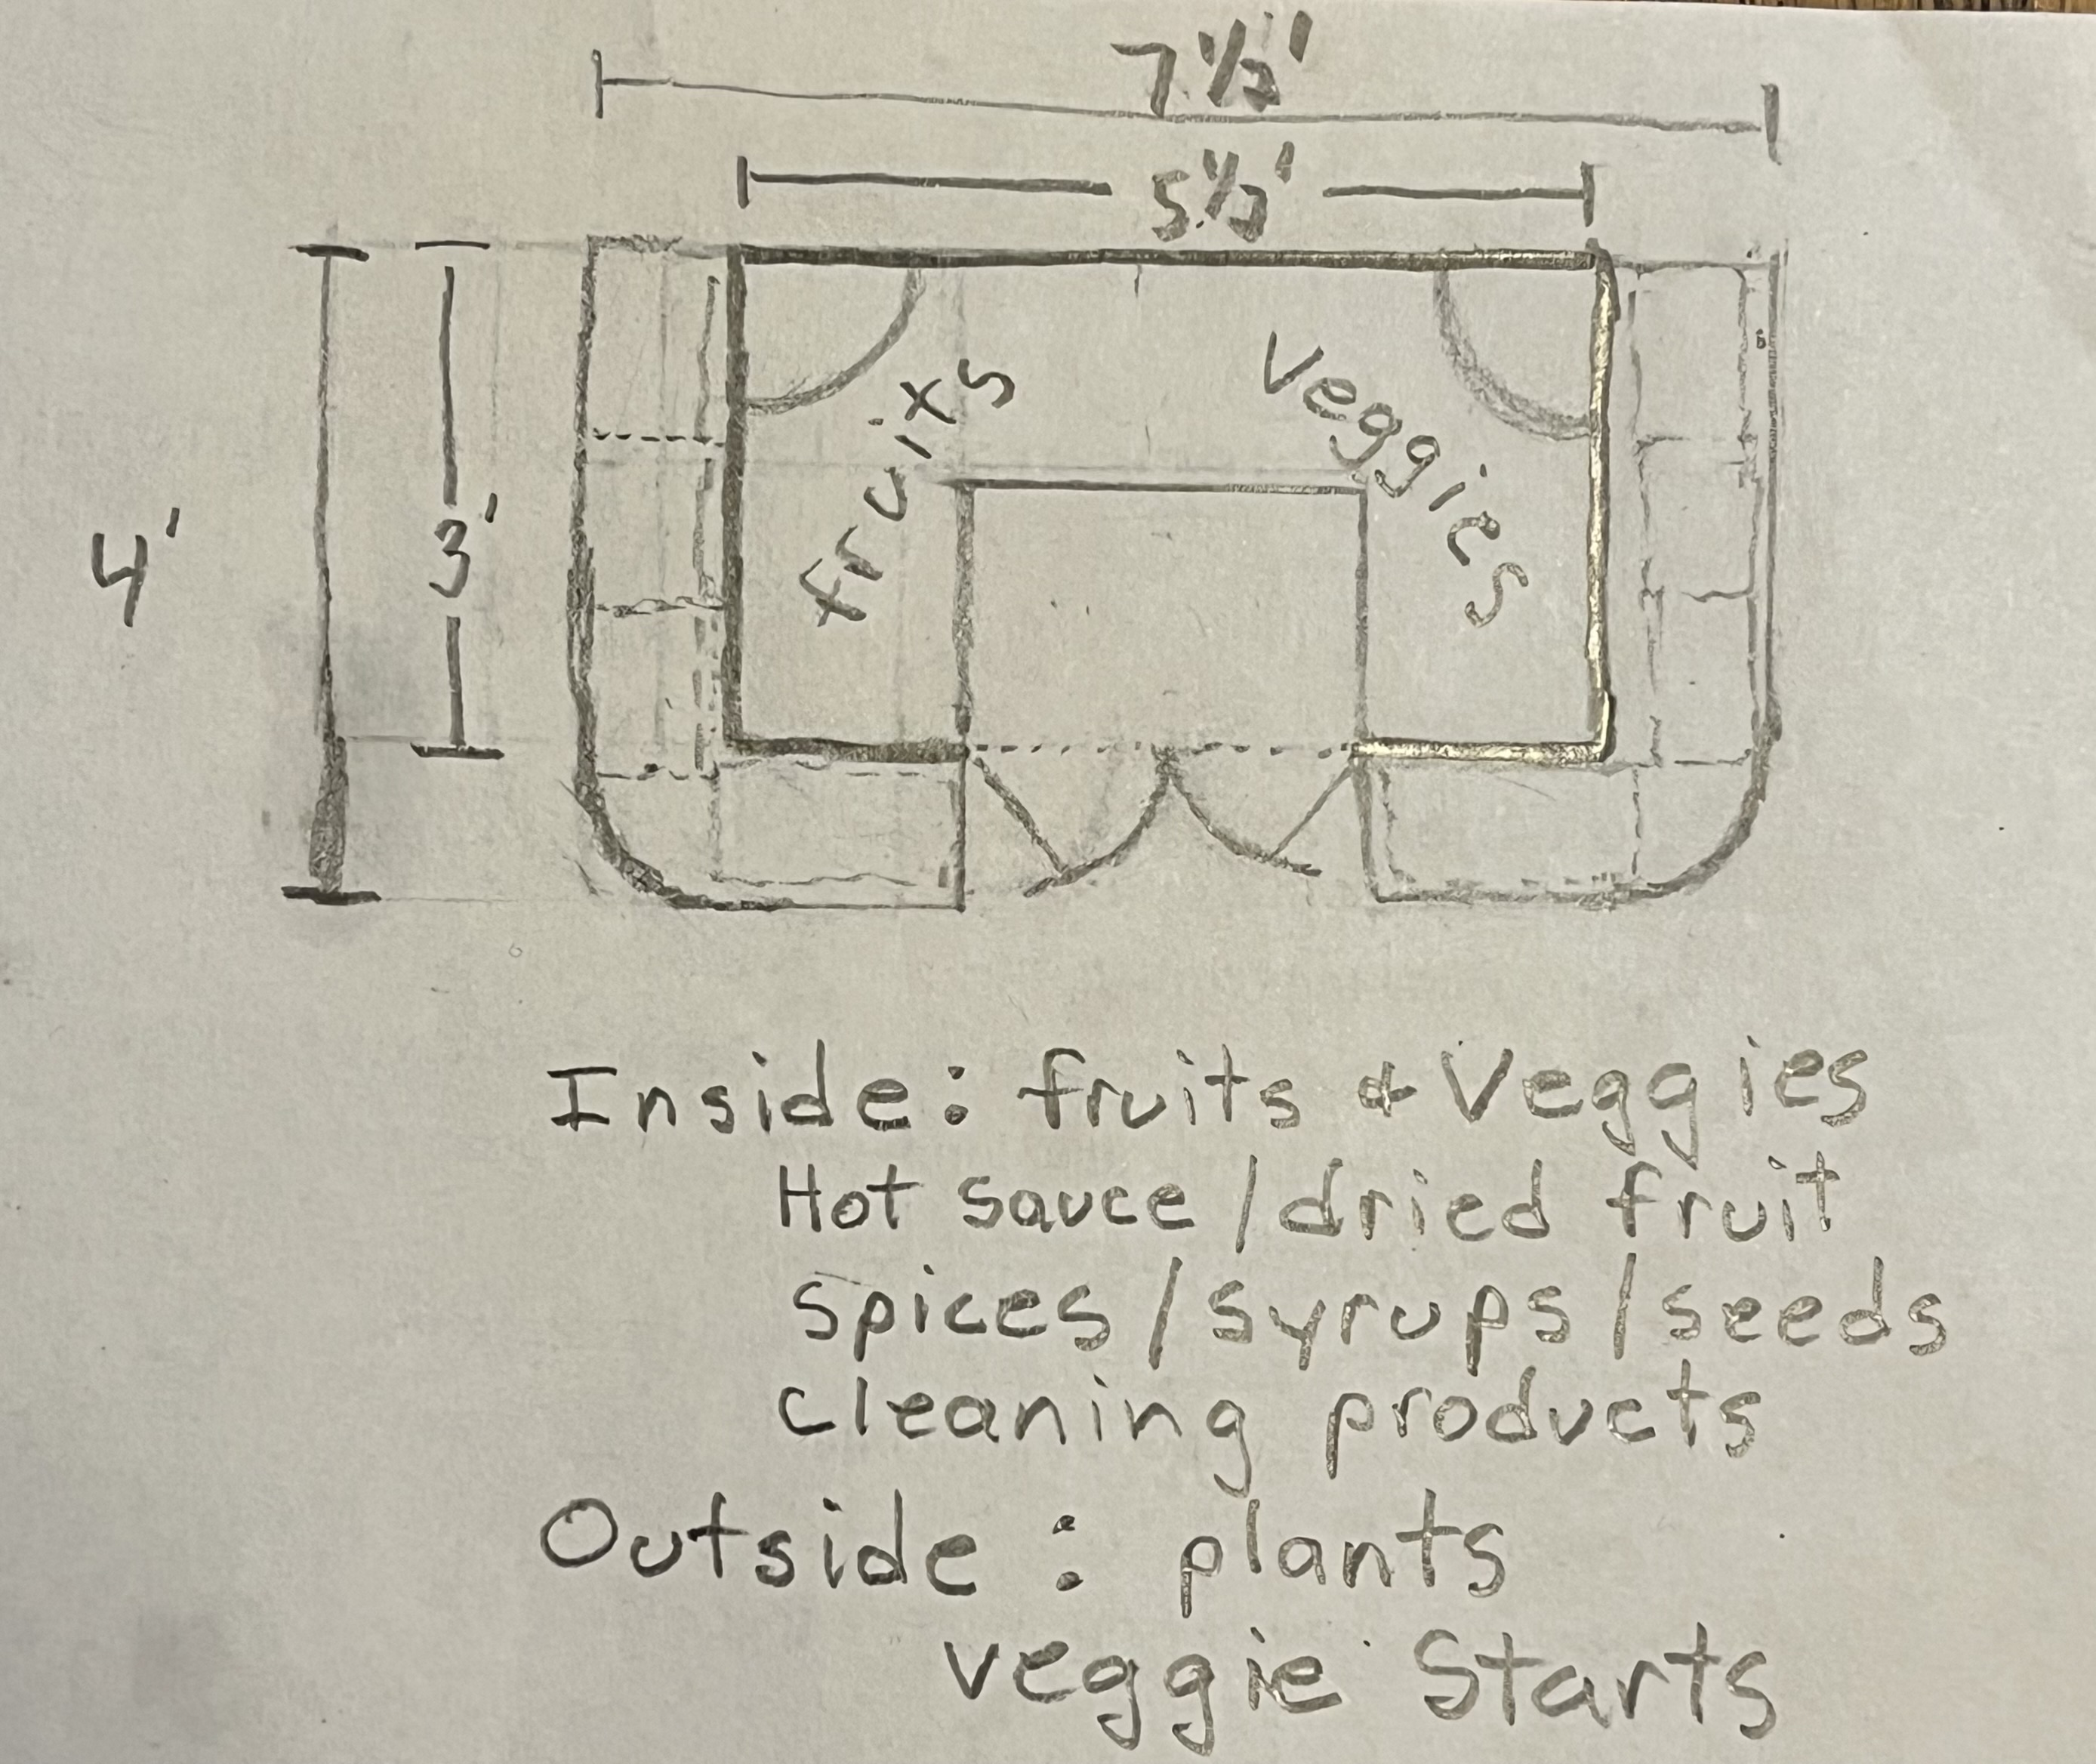 7 1/2'
5 1/2'
4'
3'
fruits
Veggies
Inside: fruits & Veggies
Hot sauce/dried fruit
spices/syrups/seeds
cleaning products
Outside: plants
veggie Starts